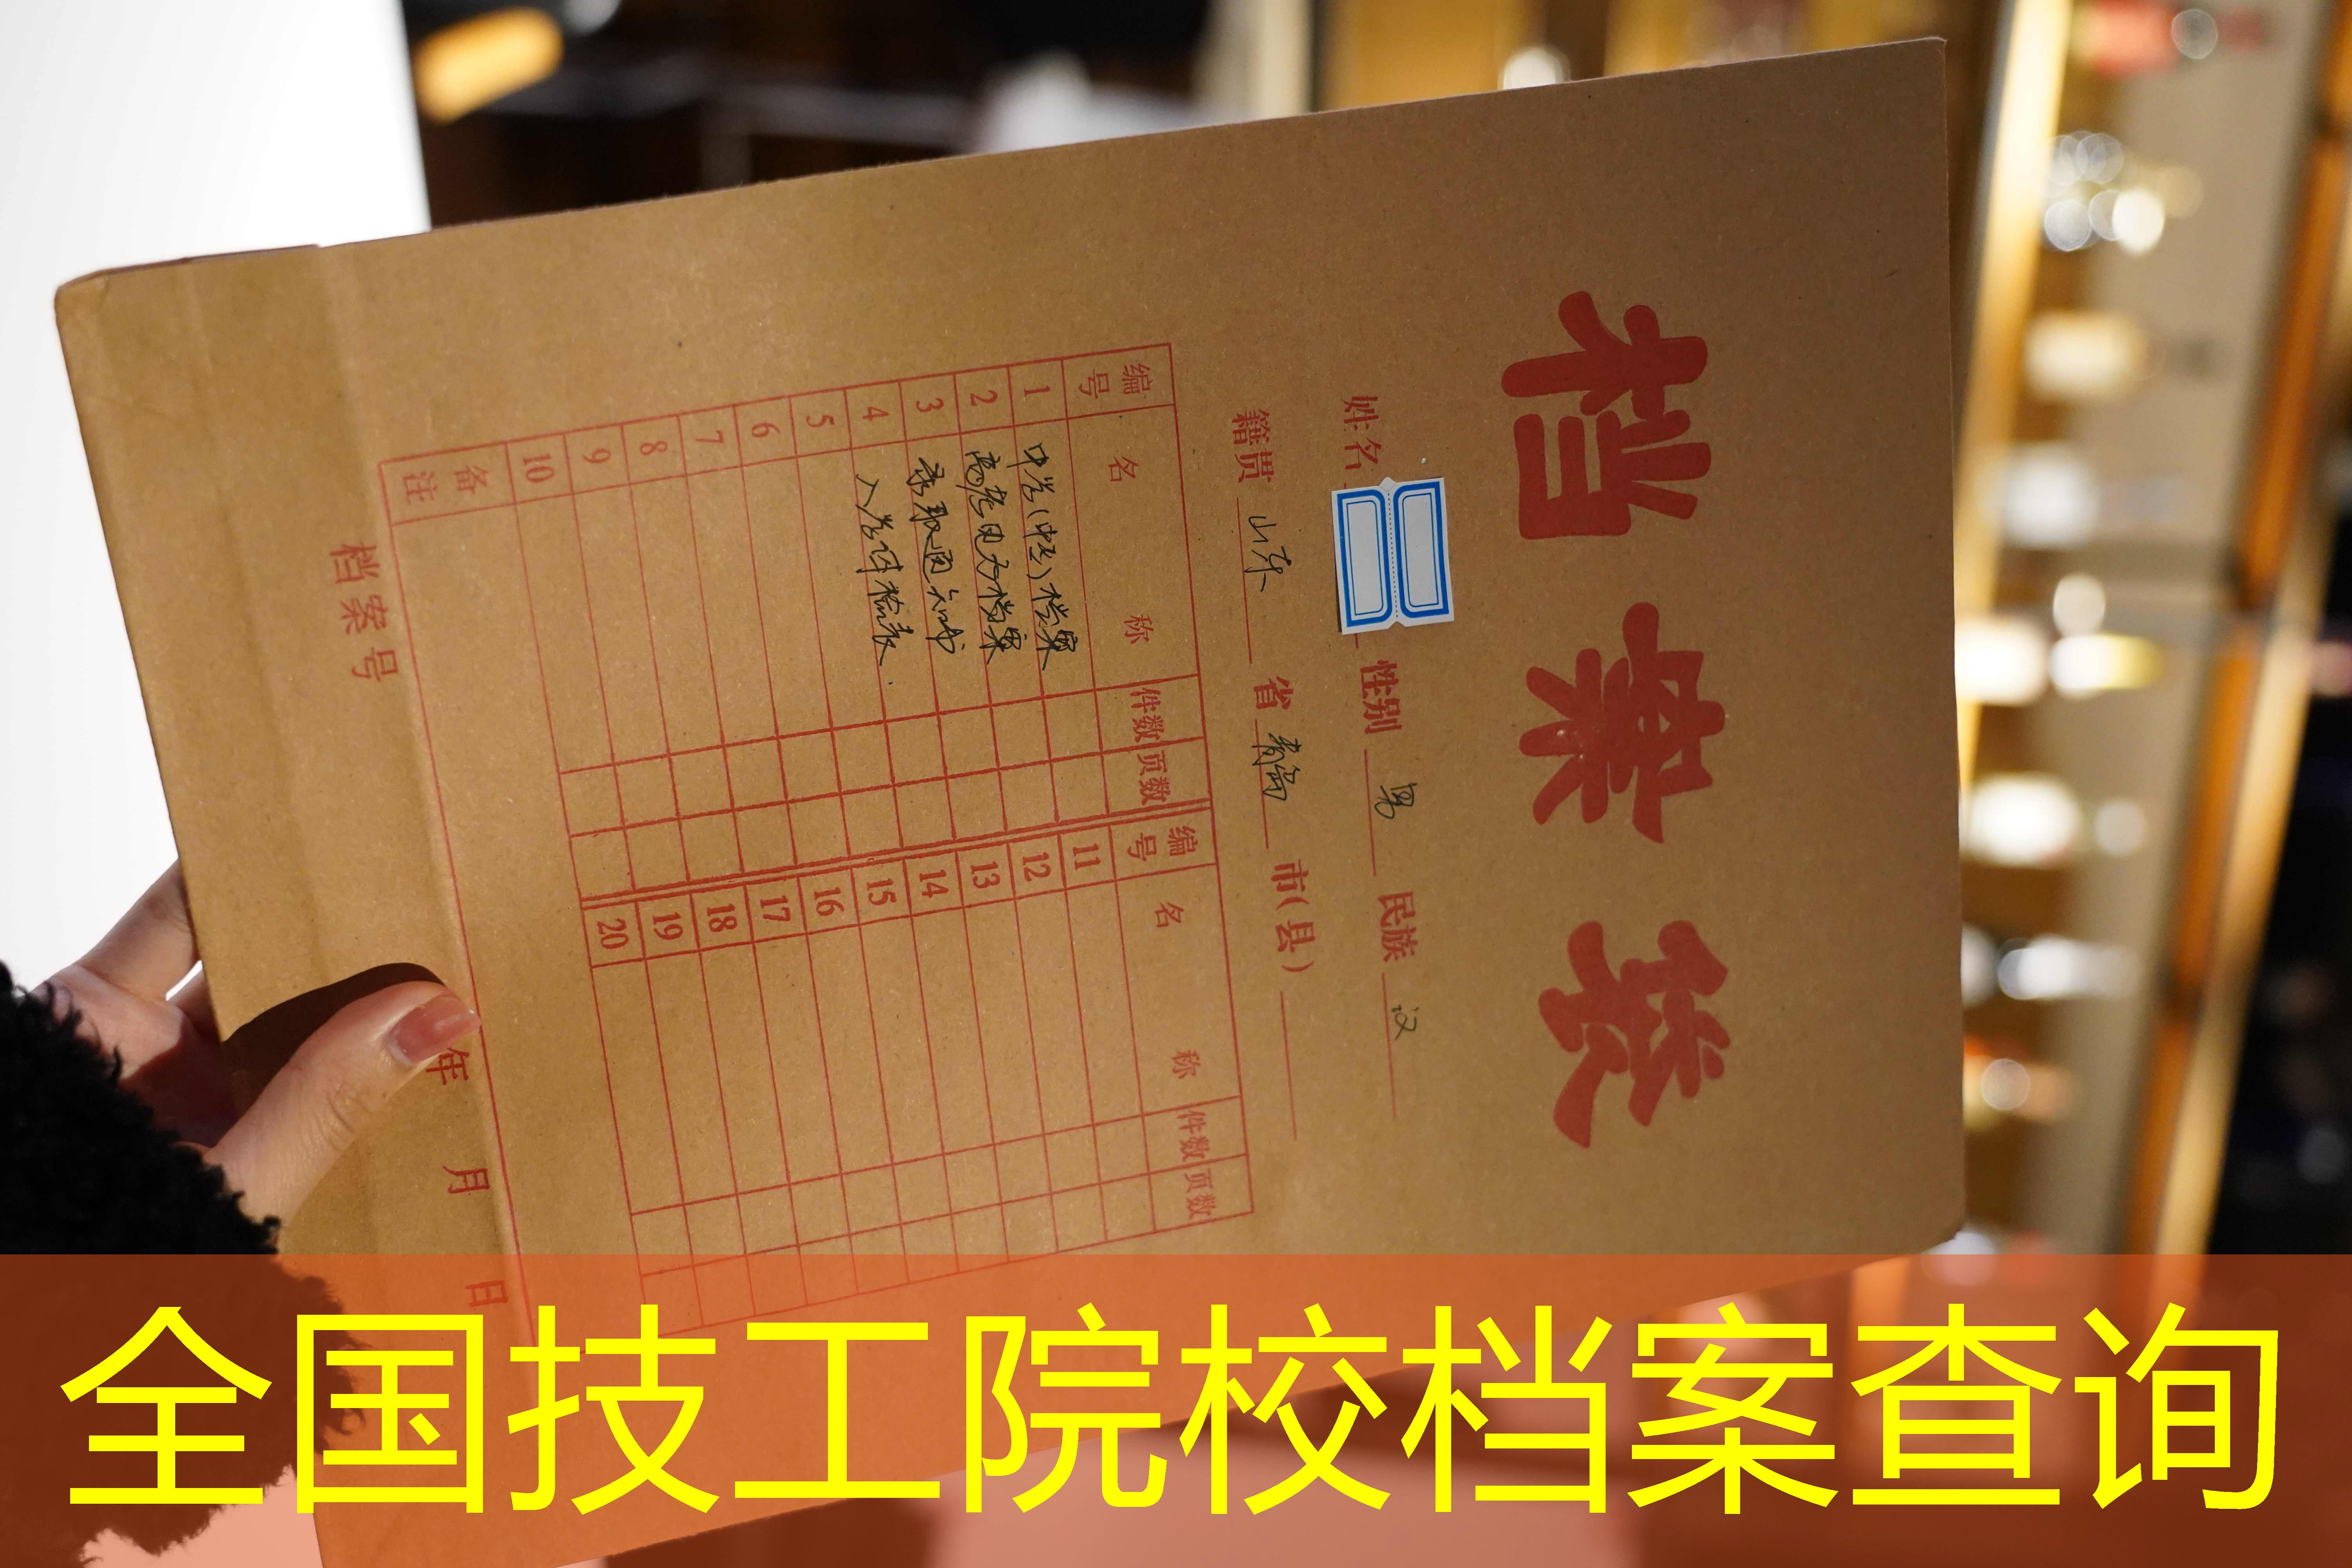 档案袋
姓名 性别 男 民族 汉
籍贯 山东 省 青岛 市(县)
编号 名称 件数 页数 编号 名称 件数 页数
1 中学(中专)档案 11
2 高考电子档案 12
3 录取通知书 13
4 入学体检表 14
5 15
6 16
7 17
8 18
9 19
10 20
备注
档案号 年 月 日
全国技工院校档案查询